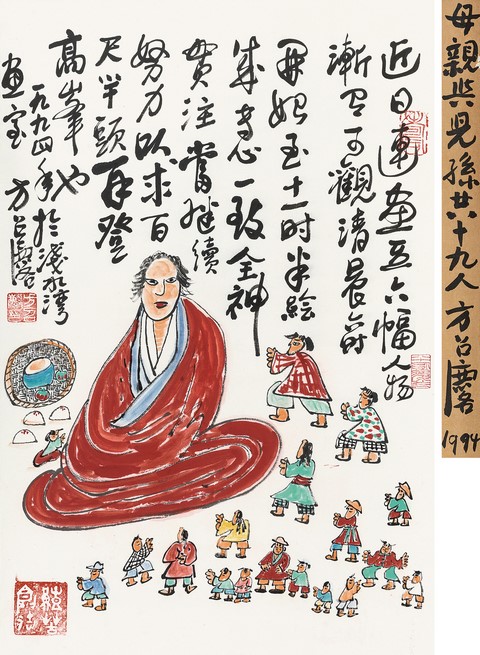 近日連畫五六幅人物
漸可觀清晨
開始至十一时半繪
成專心一致全神
貫注當继續
努力以求百
尺竿頭再登
高峯也
一九九四年於淺水灣
畫室 方召麐
母親與兒孫共十九人 方召麐 1994